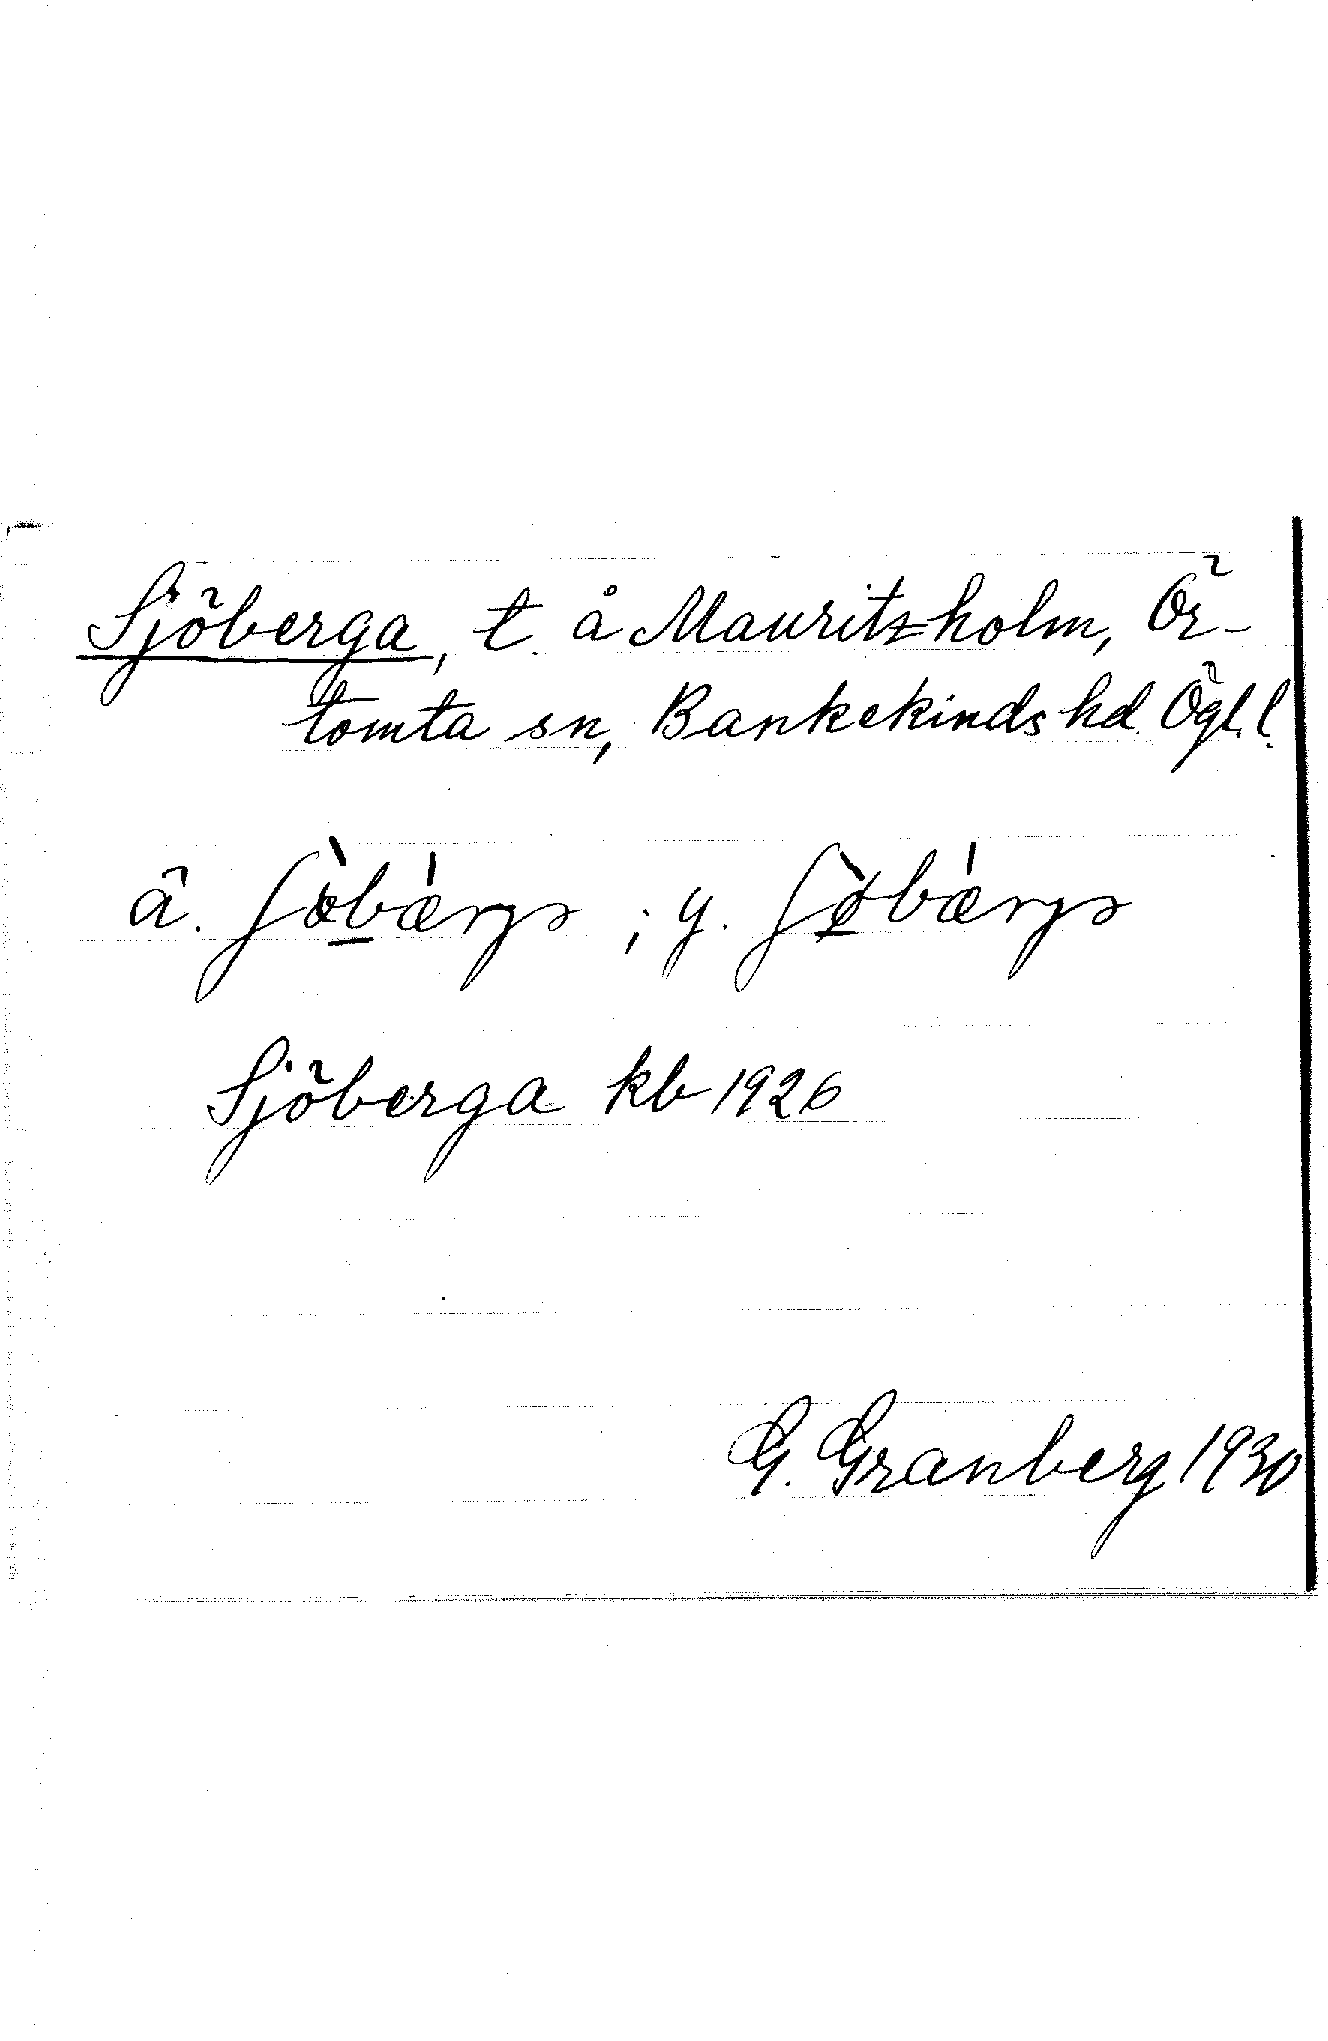 Sjöberga, t. å Mauritzholm, Ör-
tomta sn, Bankekinds hd. Ögl. l.
ä. ʃöbärjɷ ; y. ʃøbärjɷ
Sjöberga kb 1926
G. Granberg 1930